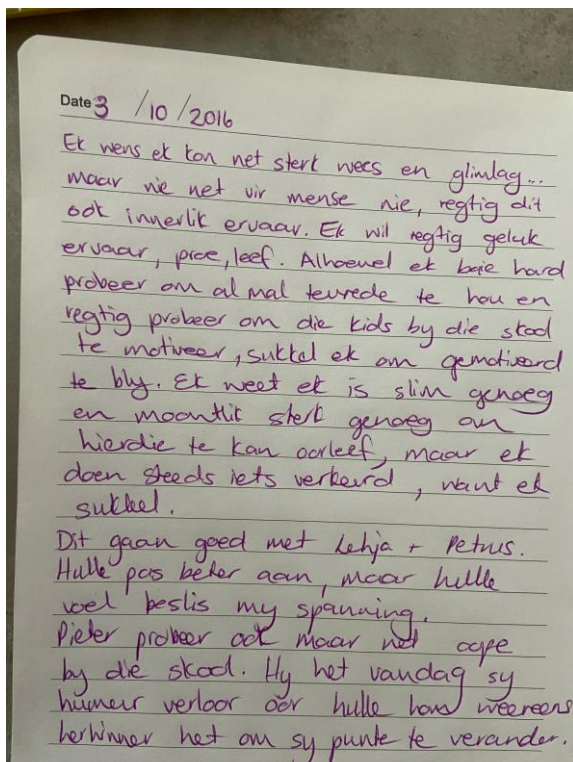 Date 3 /10 /2016
Ek wens ek kon net sterk wees en glimlag...
maar nie net vir mense nie, regtig dit
ook innerlik ervaar. Ek wil regtig geluk
ervaar, proe, leef. Alhoewel ek baie hard
probeer om al mal tevrede te hou en
regtig probeer om die kids by die skool
te motiveer, sukkel ek om gemotiveerd
te bly. Ek weet ek is slim genoeg
en moontlik sterk genoeg om
hierdie te kan oorleef, maar ek
doen steeds iets verkeerd, want ek
sukkel.
Dit gaan goed met Lehja + Petrus.
Hulle pas beter aan, maar hulle
voel beslis my spanning.
Pieter probeer ook maar net cope
by die skool. Hy het vandag sy
humeur verloor oor hulle hom weereens
herhinner het om sy punte te verander.